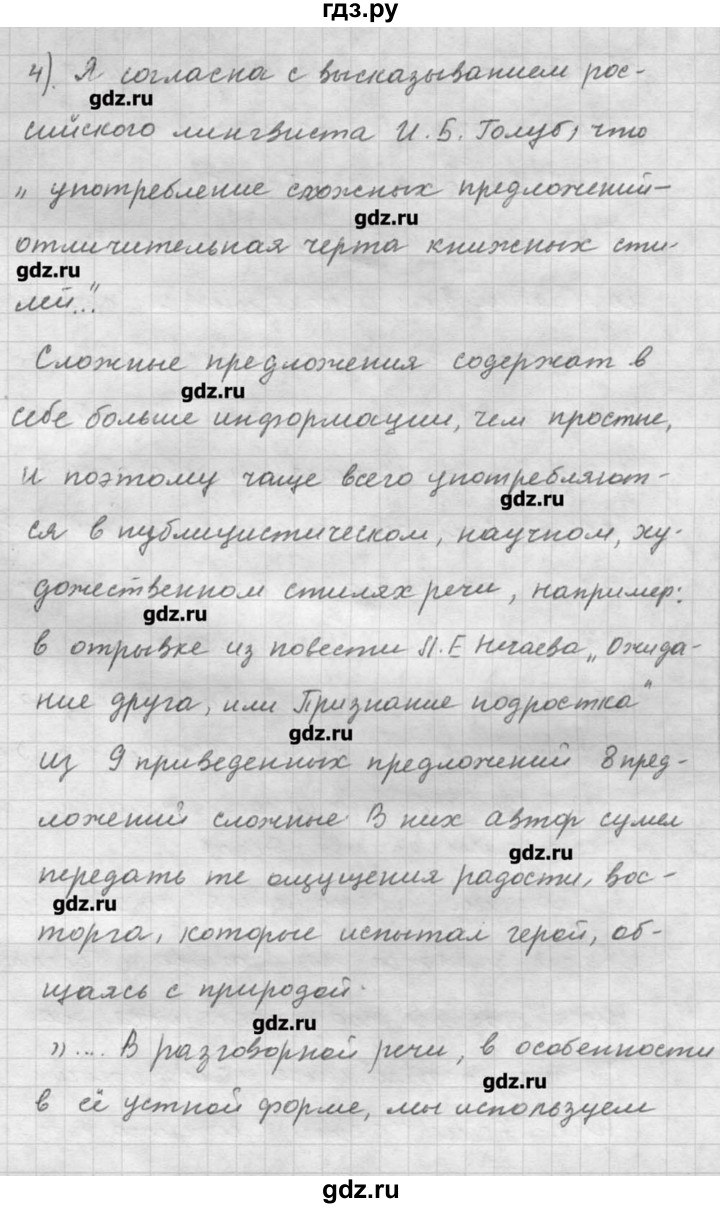 гдз.ру
4). Я согласна с высказыванием рос-
gdz.ru
сийского лингвиста И. Б. Голуб, что
„ употребление сложных предложений –
gdz.ru
отличительная черта книжных сти-
gdz.ru
лей..."
Сложные предложения содержат в
gdz.ru
себе больше информации, чем простые,
и поэтому чаще всего употребляют-
gdz.ru
ся в публицистическом, научном, ху-
дожественном стилях речи, например:
gdz.ru
в отрывке из повести П. Е Нечаева „ Ожида-
ние друга, или Признание подростка"
gdz.ru
из 9 приведенных предложений 8 пред-
ложений сложные. В них автор сумел
gdz.ru
передать те ощущения радости, вос-
gdz.ru
торга, которые испытал герой, об-
щаясь с природой.
gdz.ru
„ .... В разговорной речи, в особенности
gdz.ru
в её устной форме, мы используем
gdz.ru